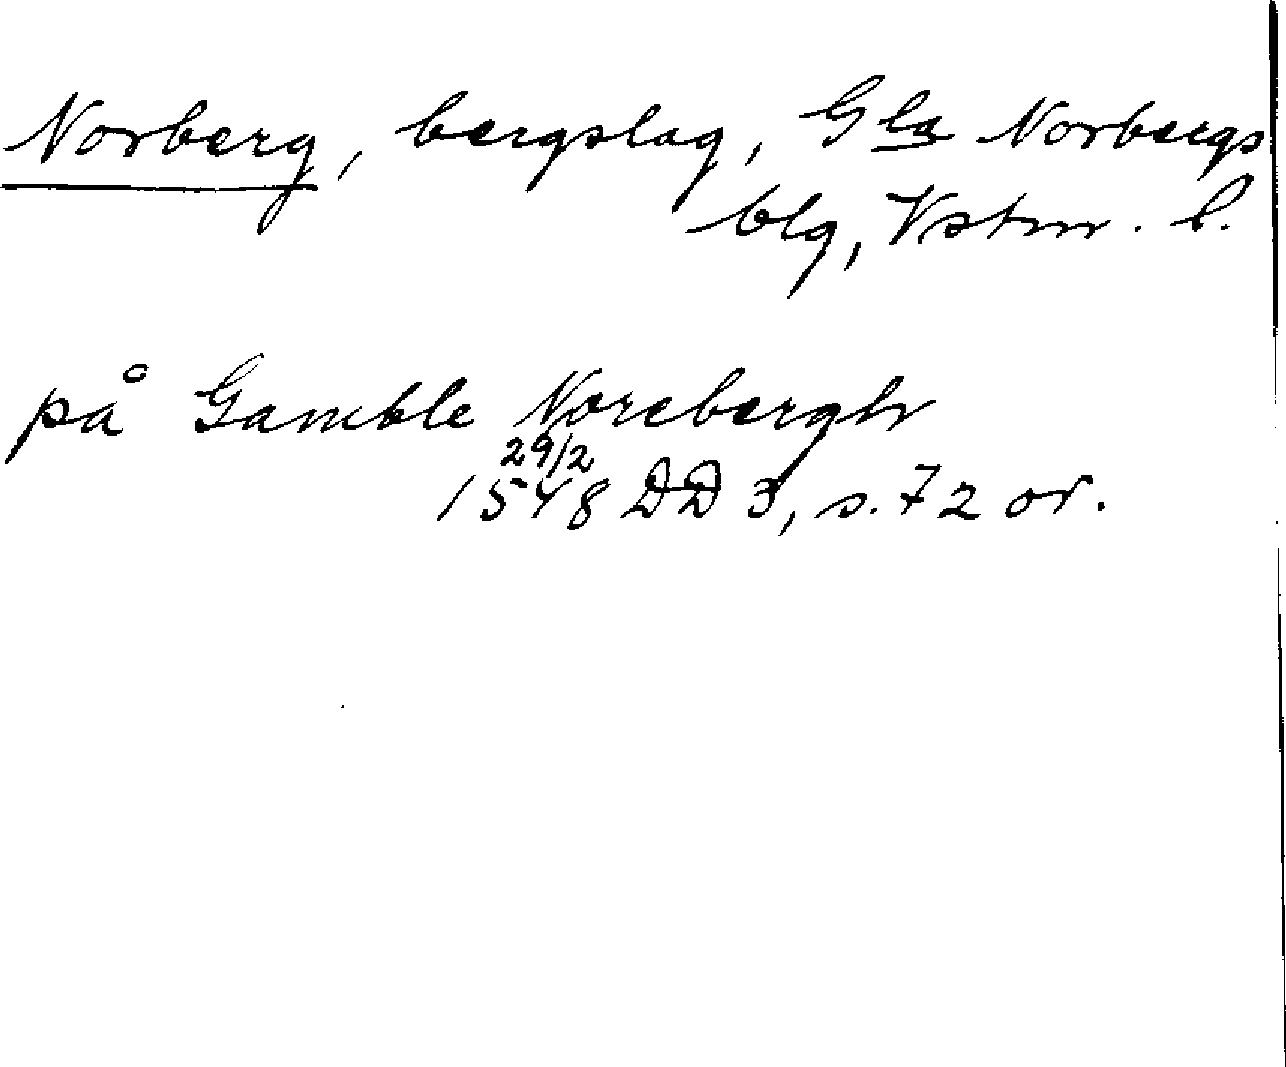 Norberg, bergslag, Gla Norbergs
blg, Vstm. l.
på Gamble Norebergh
29/2
1548 DD 3, s. 72 or.